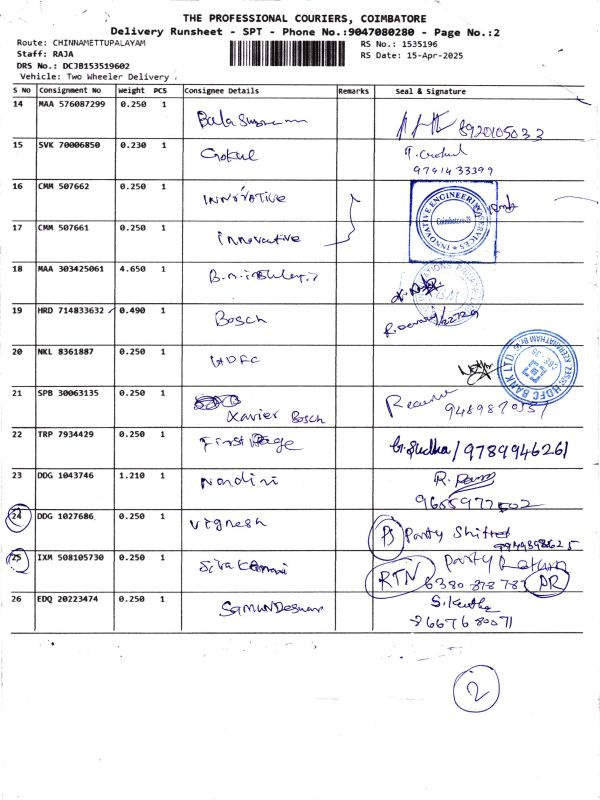 THE PROFESSIONAL COURIERS, COIMBATORE
Delivery Runsheet - SPT - Phone No.:9047080280 - Page No.:2
Route: CHINNAMETTUPALAYAM
Staff: RAJA
DRS No.: DCJB153519602
Vehicle: Two Wheeler Delivery
RS No.: 1535196
RS Date: 15-Apr-2025
S No Consignment No Weight PCS Consignee Details Remarks Seal & Signature
14 MAA 576087299 0.250 1
8920105033
15 SVK 70006850 0.230 1 Gokul T. Gokul
9791433399
16 CMM 507662 0.250 1 INNOVATIVE
INNOVATIVE ENGINEERING SERVICES
Coimbatore-29
17 CMM 507661 0.250 1 innovative
18 MAA 303425061 4.650 1
19 HRD 714833632 0.490 1 Bosch
20 NKL 8361887 0.250 1 HDFC
HDFC BANK LTD.
21 SPB 30063135 0.250 1 Xavier Bosch
22 TRP 7934429 0.250 1 First Page G. Sudha/9789946261
23 DDG 1043746 1.210 1 Nandini R.
24 DDG 1027686 0.250 1 Vignesh PS Party Shifted
25 IXM 508105730 0.250 1 Party Return
RTN
26 EDQ 20223474 0.250 1
2